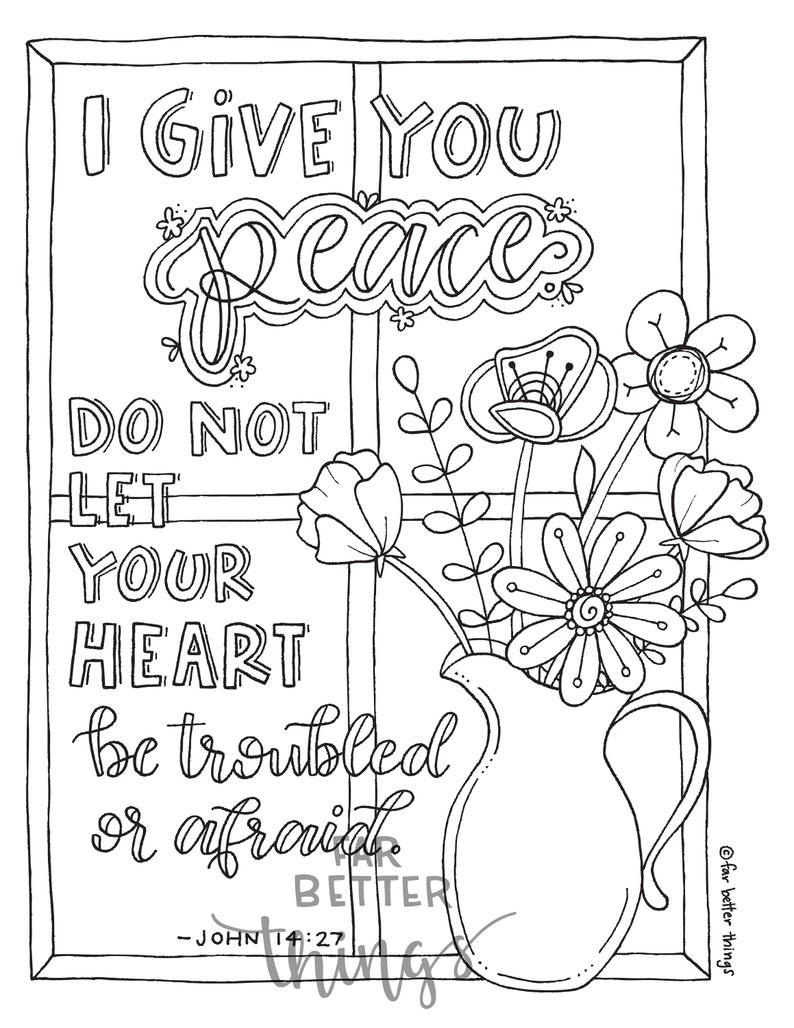 I GiVE YOU
peace.
DO NOT
LET
YOUR
HEART
be troubled
or afraid.
FAR
BETTER
things
-JOHN 14:27
©far better things